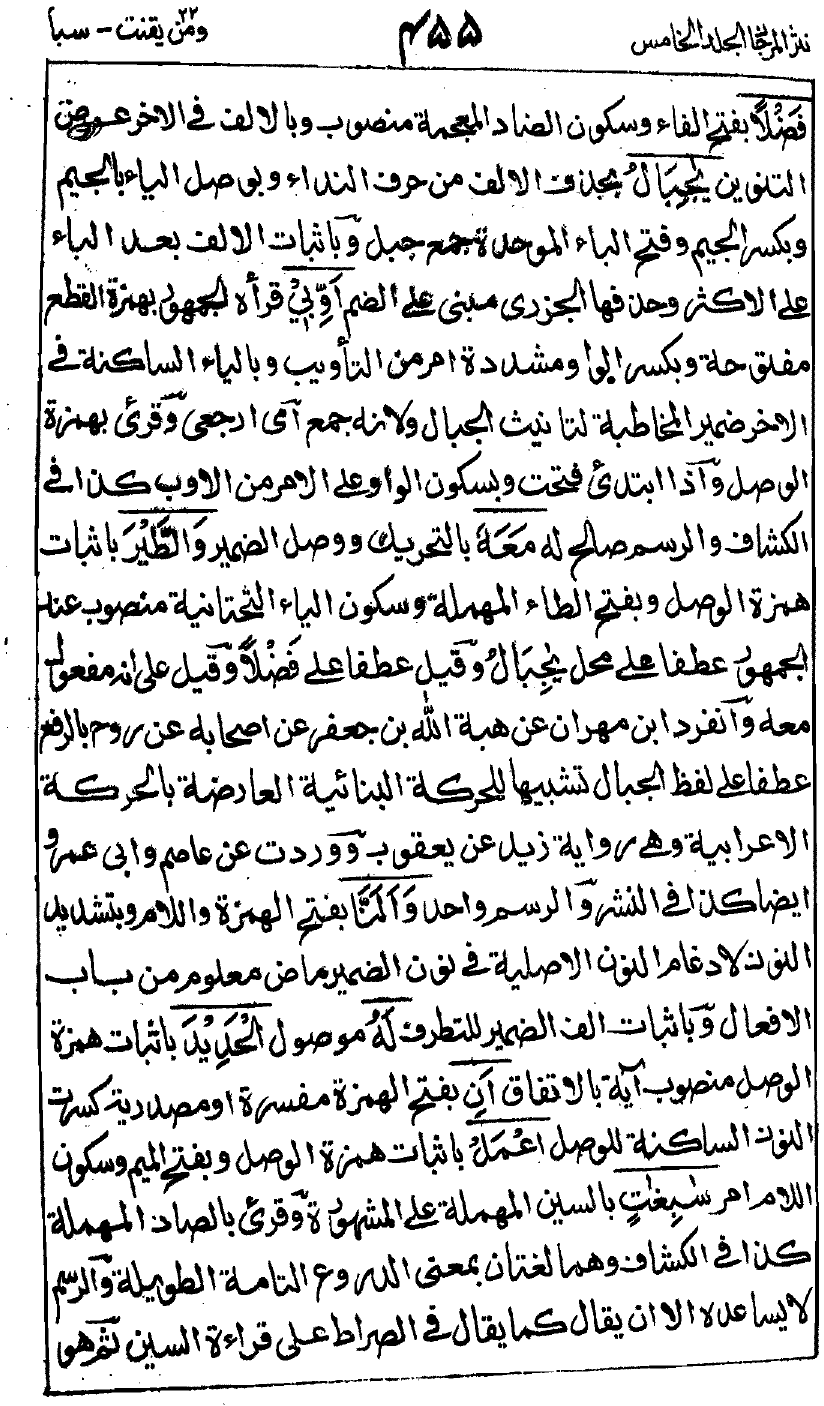 نثر المرجان المجلد الخامس ۴۵۵ ومن يقنت ۲۲ - سبأ
فَضْلًا بفتح الفاء وسكون الضاد المعجمة منصوب وبالالف في الاخر عوض
التنوين يٰجِبَالُ بحذف الالف من حرف النداء وبوصل الياء بالجيم
وبكسر الجيم وفتح الباء الموحدة جمع جبل وباثبات الالف بعد الباء
على الاكثر وحذفها الجزري مبني على الضم اَوِّبِيْ قرأه الجمهور بهمزة القطع
مفتوحة وبكسر الواو مشددة امر من التأويب وبالياء الساكنة في
الاخر ضمير المخاطبة لتانيث الجبال ولانه جمع اى ارجعى وقرئ بهمزة
الوصل واذا ابتدئ فتحت وبسكون الواو على الامر من الاوب كذا في
الكشاف والرسم صالح له مَعَهٗ بالتحريك ووصل الضمير وَالطَّيْرَ باثبات
همزة الوصل وبفتح الطاء المهملة وسكون الياء التحتانية منصوب عند
الجمهور عطفا على محل يٰجِبَالُ وقيل عطفا على فَضْلًا وقيل على انه مفعول
معه وانفرد ابن مهران عن هبة الله بن جعفر عن اصحابه عن روح بالرفع
عطفا على لفظ الجبال تشبيها للحركة البنائية العارضة بالحركة
الاعرابية وهي رواية زيد عن يعقوب ووردت عن عاصم وابي عمرو
ايضا كذا في النشر والرسم واحد وَاَلَنَّا بفتح الهمزة واللام وبتشديد
النون لادغام النون الاصلية في نون الضمير ماض معلوم من باب
الافعال وباثبات الف الضمير للتطرف لَهُ موصول الْحَدِيْدَ باثبات همزة
الوصل منصوب آية بالاتفاق اَنِ بفتح الهمزة مفسرة او مصدرية كسرت
النون الساكنة للوصل اعْمَلْ باثبات همزة الوصل وبفتح الميم وسكون
اللام امر سٰبِغٰتٍ بالسين المهملة على المشهورة وقرئ بالصاد المهملة
كذا في الكشاف وهما لغتان بمعنى الدروع التامة الطويلة والرسم
لا يساعده الا ان يقال كما يقال في الصراط على قراءة السين ثم هو